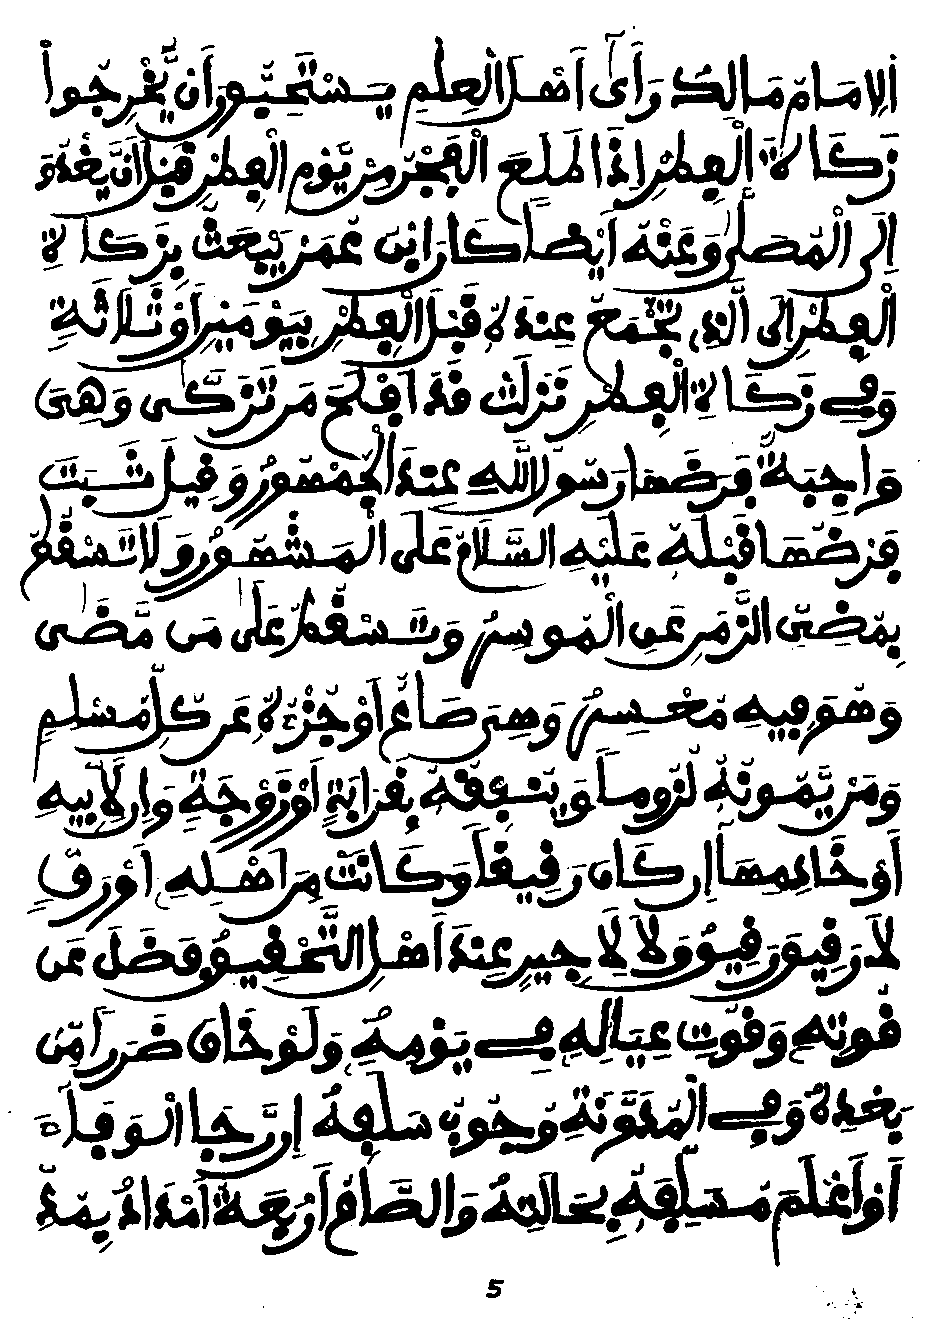 اَلِامَامَ مَالِك رَأَىٰٓ أَهْلَ الْعِلْمِ يَسْتَحِبُّونَ أَنْ يُّخْرِجُواْ
زَكَاةَ الْفِطْرِ إِذَا طَلَعَ الْفَجْرُ مِنْ يَّوْمِ الْفِطْرِ قَبْلَ أَنْ يَّغْدُوَ
إِلَى الْمُصَلَّى وَعَنْهُ أَيْضاً كَانَ ابْنُ عُمَرَ يَبْعَثُ بِزَكَاةِ
الْفِطْرِ إِلَى الَّذِي تُجْمَعُ عِنْدَهُ قَبْلَ الْفِطْرِ بِيَوْمَيْنِ أَوْ ثَلَاثَةٍ
وَفِي زَكَاةِ الْفِطْرِ نَزَلَتْ قَدَ اَفْلَحَ مَن تَزَكَّى وَهِيَ
وَاجِبَةٌ فَرَضَهَا رَسُولُ اللَّهِ عِنْدَ الْجُمْهُورِ وَقِيلَ ثَبَتَ
فَرْضُهَا قَبْلَهُ عَلَيْهِ السَّلَامُ عَلَى الْمَشْهُورِ وَلَا تَسْقُطُ
بِمُضِيِّ الزَّمَنِ عَنِ الْمُوسِرِ وَتَسْقُطُ عَلَى مَن مَّضَى
وَهُوَ فِيهِ مُعْسِرٌ وَهِيَ صَاعٌ أَوْ جُزْءُهُ عَن كُلِّ مُسْلِمٍ
وَمَنْ يَّمُونُهُ لُزُوماً وَيُنْفِقُهُ بِقَرَابَةٍ أَوْ زَوْجَةٍ وَإِن لِأَبِيهِ
أَوْ خَادِمِهَا إِن كَانَ رَقِيقاً وَكَانَتْ مِنْ اَهْلِهِ أَوْ رِقٍّ
لَا رَقِيقِ رَقِيقٍ وَلَا لِأَجِيرٍ عِنْدَ أَهْلِ التَّحْقِيقِ فَضَلَ عَن
قُوتِهِ وَقُوتِ عِيَالِهِ فِي يَوْمِهِ وَلَوْ خَافَ ضَرَراً مِّن
بَعْدِهِ وَفِي الْمُدَوَّنَةِ وُجُوبُ سَلَفِهِ إِن رَّجَا الْوَفَاءَ
أَوْ أَعْلَمَ مُسَلِّفَهُ بِحَالَتِهِ وَالصَّاعُ أَرْبَعَةُ أَمْدَادٍ بِمُدِّ
5